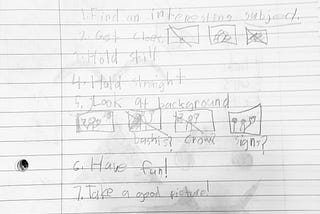 1. Find an interesting subject.
2. Get close
3. Hold still
4. Hold straight
5. Look at background
bushis? crowd signs?
6. Have fun!
7. Take a good picture!